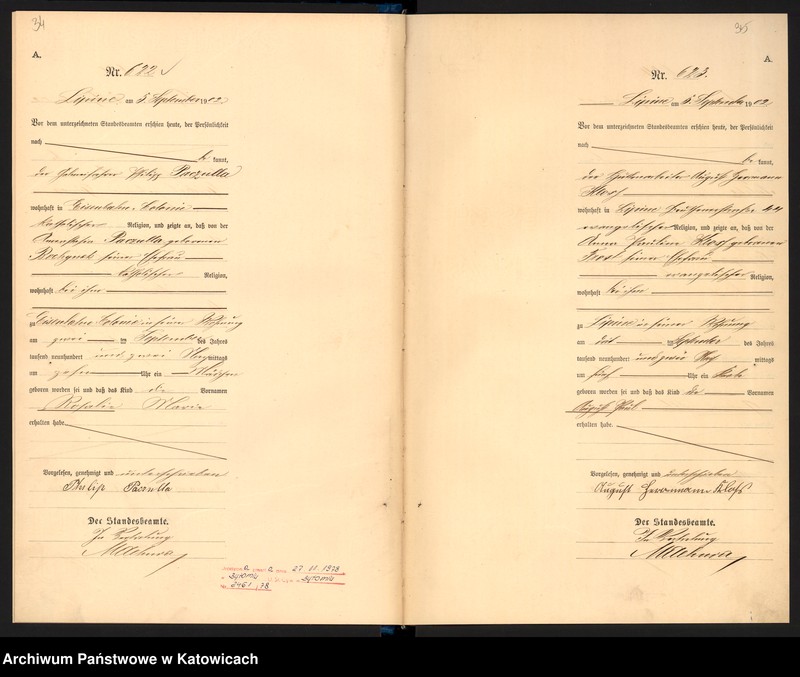 34
A.
Nr. 622
Lipine am 3. September 1902
Vor dem unterzeichneten Standesbeamten erschien heute, der Persönlichkeit
nach
be kannt,
der Philipp Paczulla
wohnhaft in Eisenbahn-Colonie
katholischer Religion, und zeigte an, daß von der
Paczulla geborenen
seiner Ehefrau
katholischer Religion,
wohnhaft bei ihm
zu Eisenbahn-Colonie in seiner Wohnung
am zwei ten September des Jahres
tausend neunhundert und zwei Vor mittags
um zehn Uhr ein Mädchen
geboren worden sei und daß das Kind die Vornamen
Rosalie Marie
erhalten habe.
Vorgelesen, genehmigt und unterschrieben
Philip Paczulla
Der Standesbeamte.
In Vertretung
23.11.1978
35
A.
Nr. 623.
Lipine am September 1902
Vor dem unterzeichneten Standesbeamten erschien heute, der Persönlichkeit
nach
be kannt,
der Hüttenarbeiter August Hermann
Kloß
wohnhaft in Lipine 44
evangelischer Religion, und zeigte an, daß von der
Anna Pauline Kloß geborenen
seiner Ehefrau
evangelischer Religion,
wohnhaft bei ihm
zu Lipine in seiner Wohnung
am ten September des Jahres
tausend neunhundert und zwei mittags
um fünf Uhr ein Knabe
geboren worden sei und daß das Kind die Vornamen
August Paul
erhalten habe.
Vorgelesen, genehmigt und unterschrieben
August Herrmann Kloß
Der Standesbeamte.
In Vertretung
Archiwum Państwowe w Katowicach